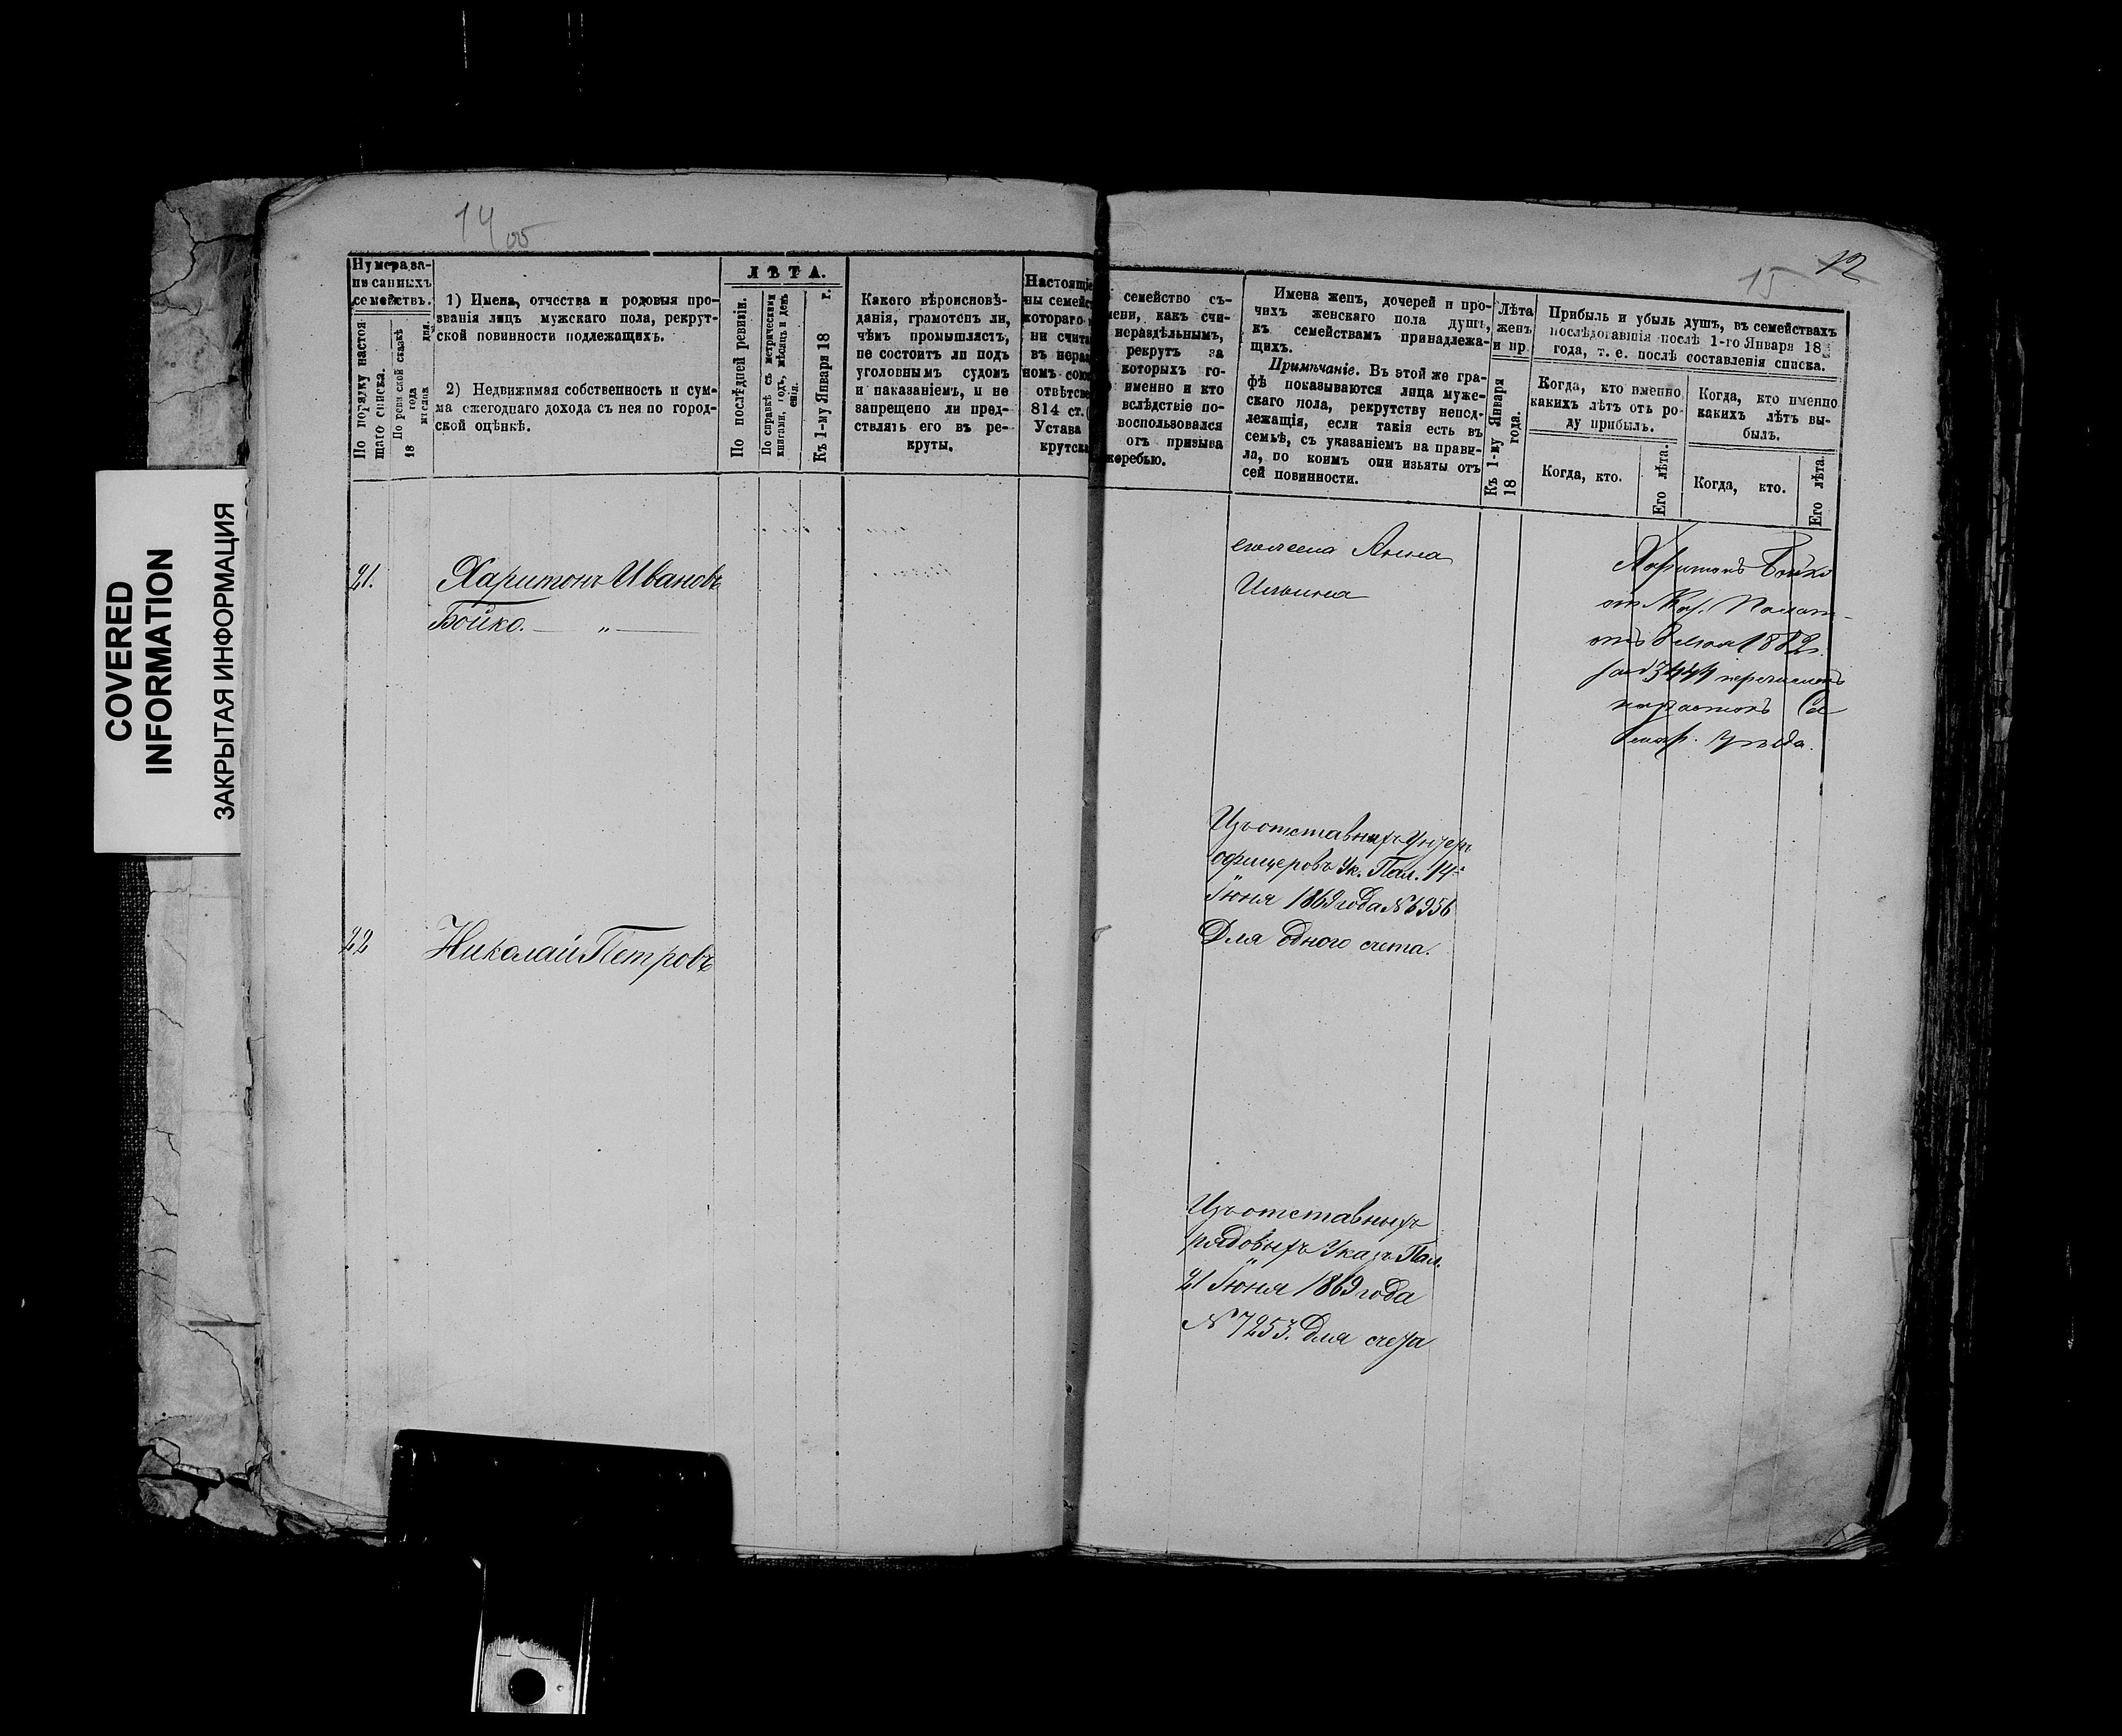 COVERED
INFORMATION
ЗАКРЫТАЯ ИНФОРМАЦИЯ
14 об
Нумера за-
писанныхъ
семействъ.
По порядку настоя
щаго списка.
По ревизской сказкѣ
18 года
мѣсяца дня.
1) Имена, отчества и родовыя про-
званія лицъ мужскаго пола, рекрут-
ской повинности подлежащихъ.
2) Недвижимая собственность и сум-
ма ежегоднаго дохода съ нея по город-
ской оцѣнкѣ.
ЛѢТА.
По послѣдней ревизіи.
По справкѣ съ метрическими
книгами, годъ, мѣсяцъ и день
Къ 1-му Января 18 г.
Какого вѣроисповѣ-
данія, грамотенъ ли,
чѣмъ промышляетъ,
не состоитъ ли подъ
уголовнымъ судомъ
и наказаніемъ, и не
запрещено ли пред-
ставлять его въ ре-
круты.
Настоящіе
ны семейс
котораго
ни счита
въ нерал
номъ союз
отвѣтстве
814 ст. (
Устава
крутска
21. Харитонъ Ивановъ
Бойко. — „ —
22 Николай Петровъ
12
15
семейство съ-
мени, какъ счи-
нераздѣльнымъ,
рекрутъ за
которыхъ го-
именно и кто
вслѣдствіе по-
воспользовался
отъ призыва
жеребью.
Имена женъ, дочерей и про-
чихъ женскаго пола душъ,
къ семействамъ принадлежа-
щихъ.
Примѣчаніе. Въ этой же гра-
фѣ показываются лица муже-
скаго пола, рекрутству непод-
лежащія, если такія есть въ
семьѣ, съ указаніемъ на прави-
ла, по коимъ они изъяты отъ
сей повинности.
Лѣта
женъ
и пр.
Къ 1-му Января
18 года.
Прибыль и убыль душъ, въ семействахъ
послѣдовавшія послѣ 1-го Января 18
года, т. е. послѣ составленія списка.
Когда, кто именно
какихъ лѣтъ отъ ро-
ду прибылъ.
Когда, кто именно
какихъ лѣтъ вы-
былъ.
Когда, кто.
Его лѣта.
Когда, кто.
Его лѣта.
Анна
Ильина
Харитонъ Бойко
отъ 8 мая 1882
за 3444 перечисленъ
уѣзда.
Изъ отставныхъ Унтеръ
офицеровъ Ук. Пал. 14
Іюня 1869 года № 6956
Для одного счета.
Изъ отставныхъ
рядовыхъ Указъ Пал.
21 Іюня 1869 года
№ 7253. Для счета